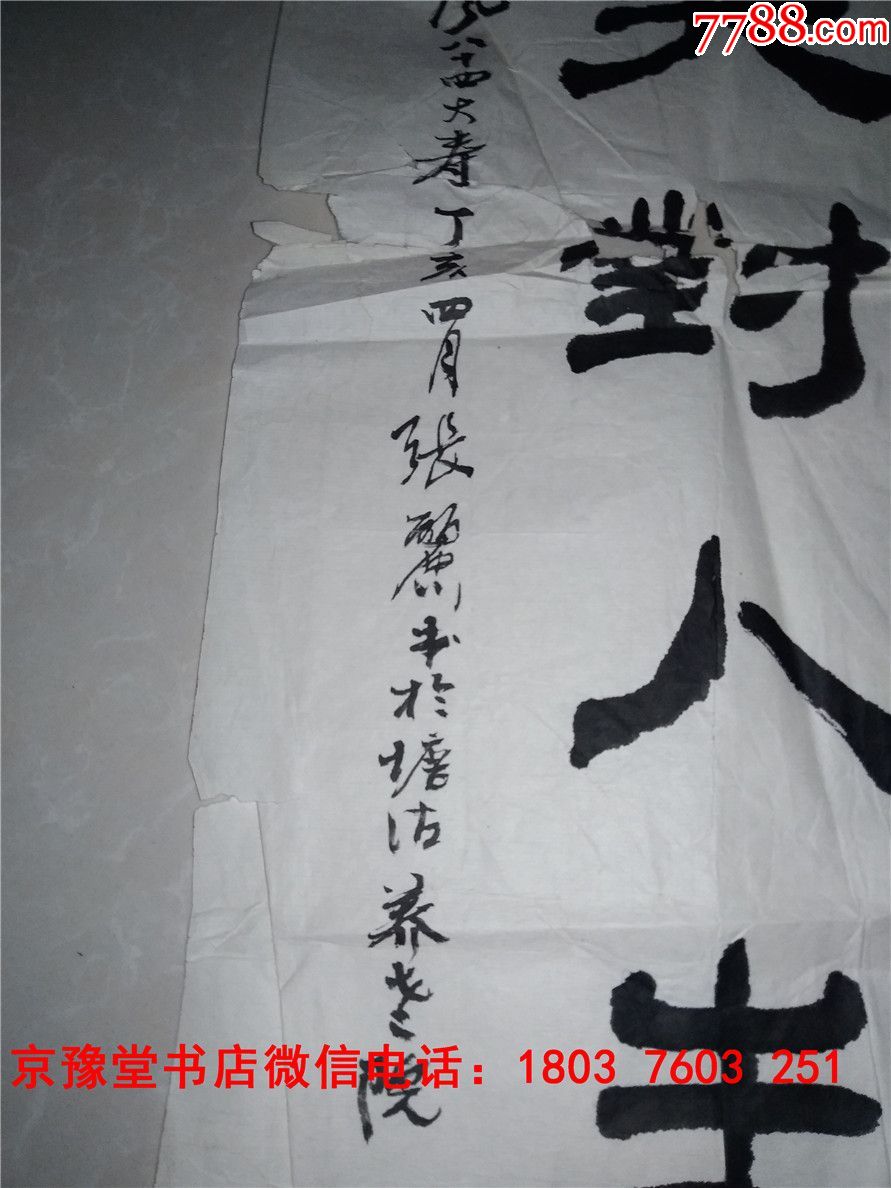 7788.com
對人生
八十四大寿丁亥四月張麗书於塘沽养老院
京豫堂书店微信电话：1803 7603 251